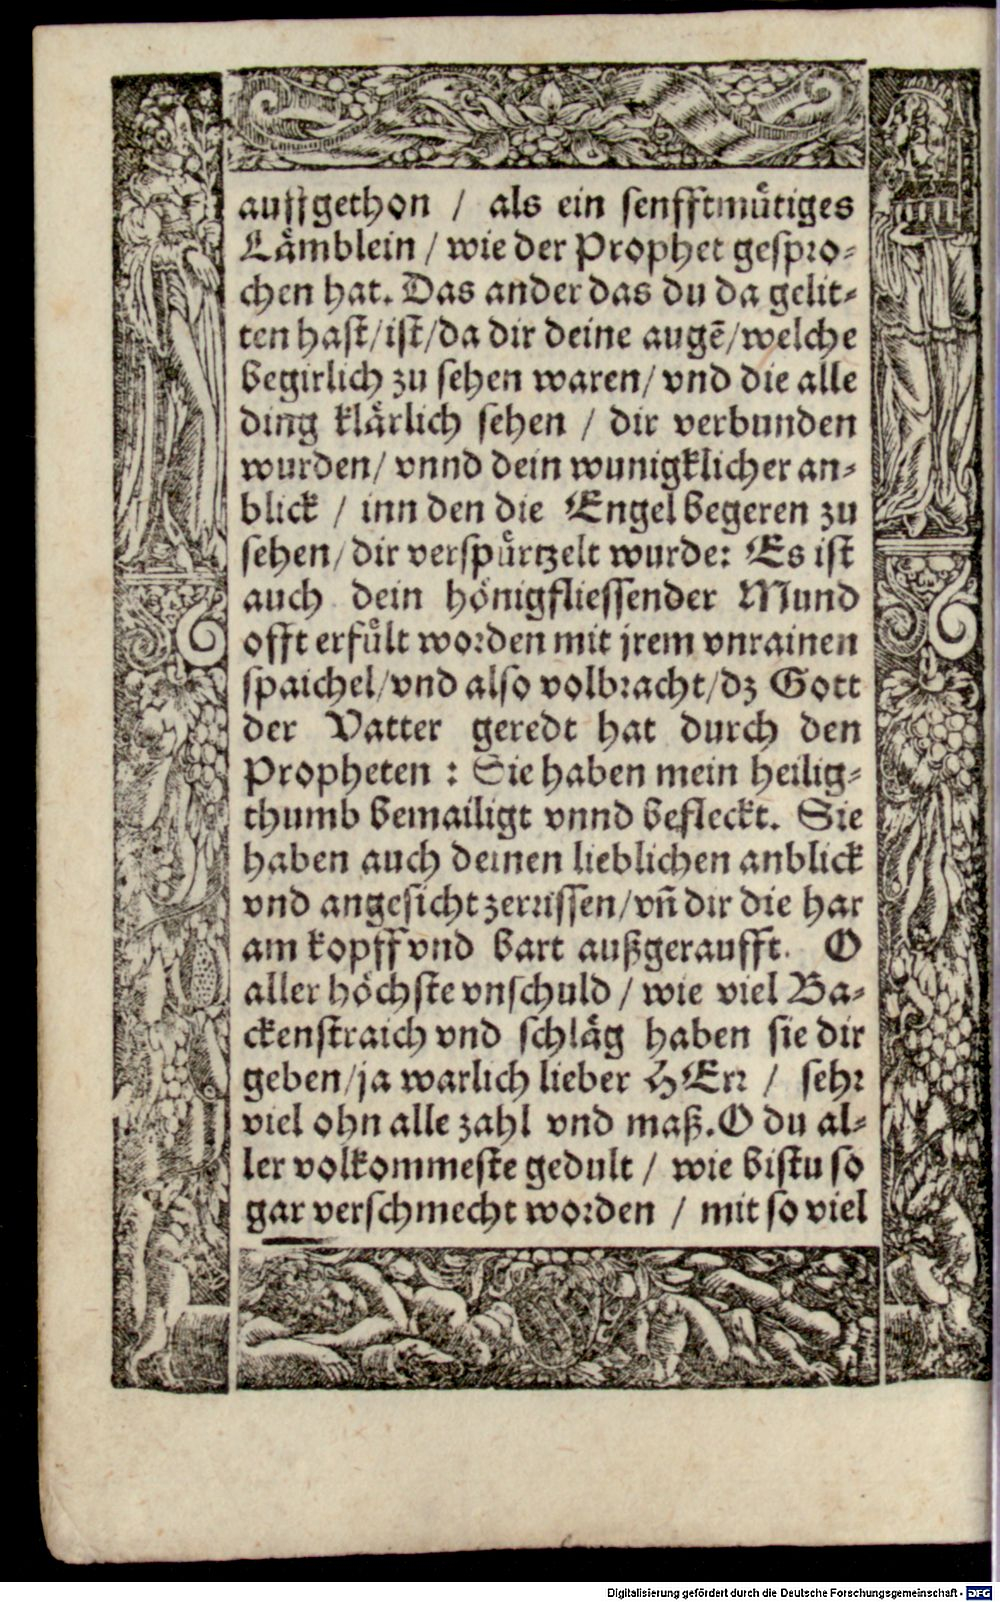 auffgethon / als ein senfftmuͤtiges
Laͤmblein / wie der Prophet gespro⸗
chen hat. Das ander das du da gelit⸗
ten hast/ist/da dir deine augē/welche
begirlich zu sehen waren/ vnd die alle
ding klaͤrlich sehen / dir verbunden
wurden/ vnnd dein wunigklicher an⸗
blick / inn den die Engel begeren zu
sehen/dir verspuͤrtzelt wurde: Es ist
auch dein hoͤnigfliessender Mund
offt erfuͤlt worden mit jrem vnrainen
spaichel/vnd also volbracht/dz Gott
der Vatter geredt hat durch den
Propheten : Sie haben mein heilig⸗
thumb bemailigt vnnd befleckt. Sie
haben auch deinen lieblichen anblick
vnd angesicht zerrissen/vñ dir die har
am kopff vnd bart außgeraufft. O
aller hoͤchste vnschuld / wie viel Ba⸗
ckenstraich vnd schlaͤg haben sie dir
geben/ja warlich lieber HErr / sehr
viel ohn alle zahl vnd maß. O du al⸗
ler volkommeste gedult / wie bistu so
gar verschmecht worden / mit so viel
Digitalisierung gefördert durch die Deutsche Forschungsgemeinschaft - DFG